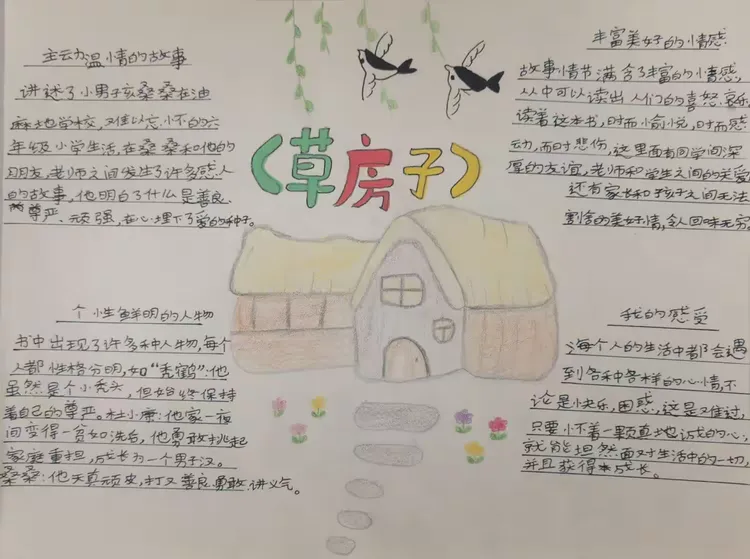 《草房子》
主云力温情的故事
讲述了小男子孩桑桑在油
麻地学校,难以忘怀的六
年级小学生活,在桑桑和他的
朋友,老师之间发生了许多感人
的故事,他明白了什么是善良
尊严、顽强,在心埋下了爱的种子。
丰富美好的情感
故事情节满含了丰富的情感,
从中可以读出人们的喜怒哀乐,
读着这本书,时而愉悦,时而感
动,而时悲伤,这里面有同学间深
厚的友谊,老师和学生之间的关爱
还有家长和孩子之间无法
割舍的美好情,令人回味无穷。
个性鲜明的人物
书中出现了许多种人物,每个
人都性格分明,如“秃鹤”:他
虽然是个小秃头,但始终保持
着自己的尊严。杜小康:他家一夜
间变得一贫如洗后,他勇敢挑起
家庭重担,成长为一个男子汉。
桑桑:他天真顽皮,打又善良勇敢讲义气。
我的感受
每个人的生活中都会遇
到各种各样的心情,不
论是快乐,困惑,这是难过,
只要小不着一颗真地诚的心,
就能坦然面对生活中的一切,
并且获得成长。